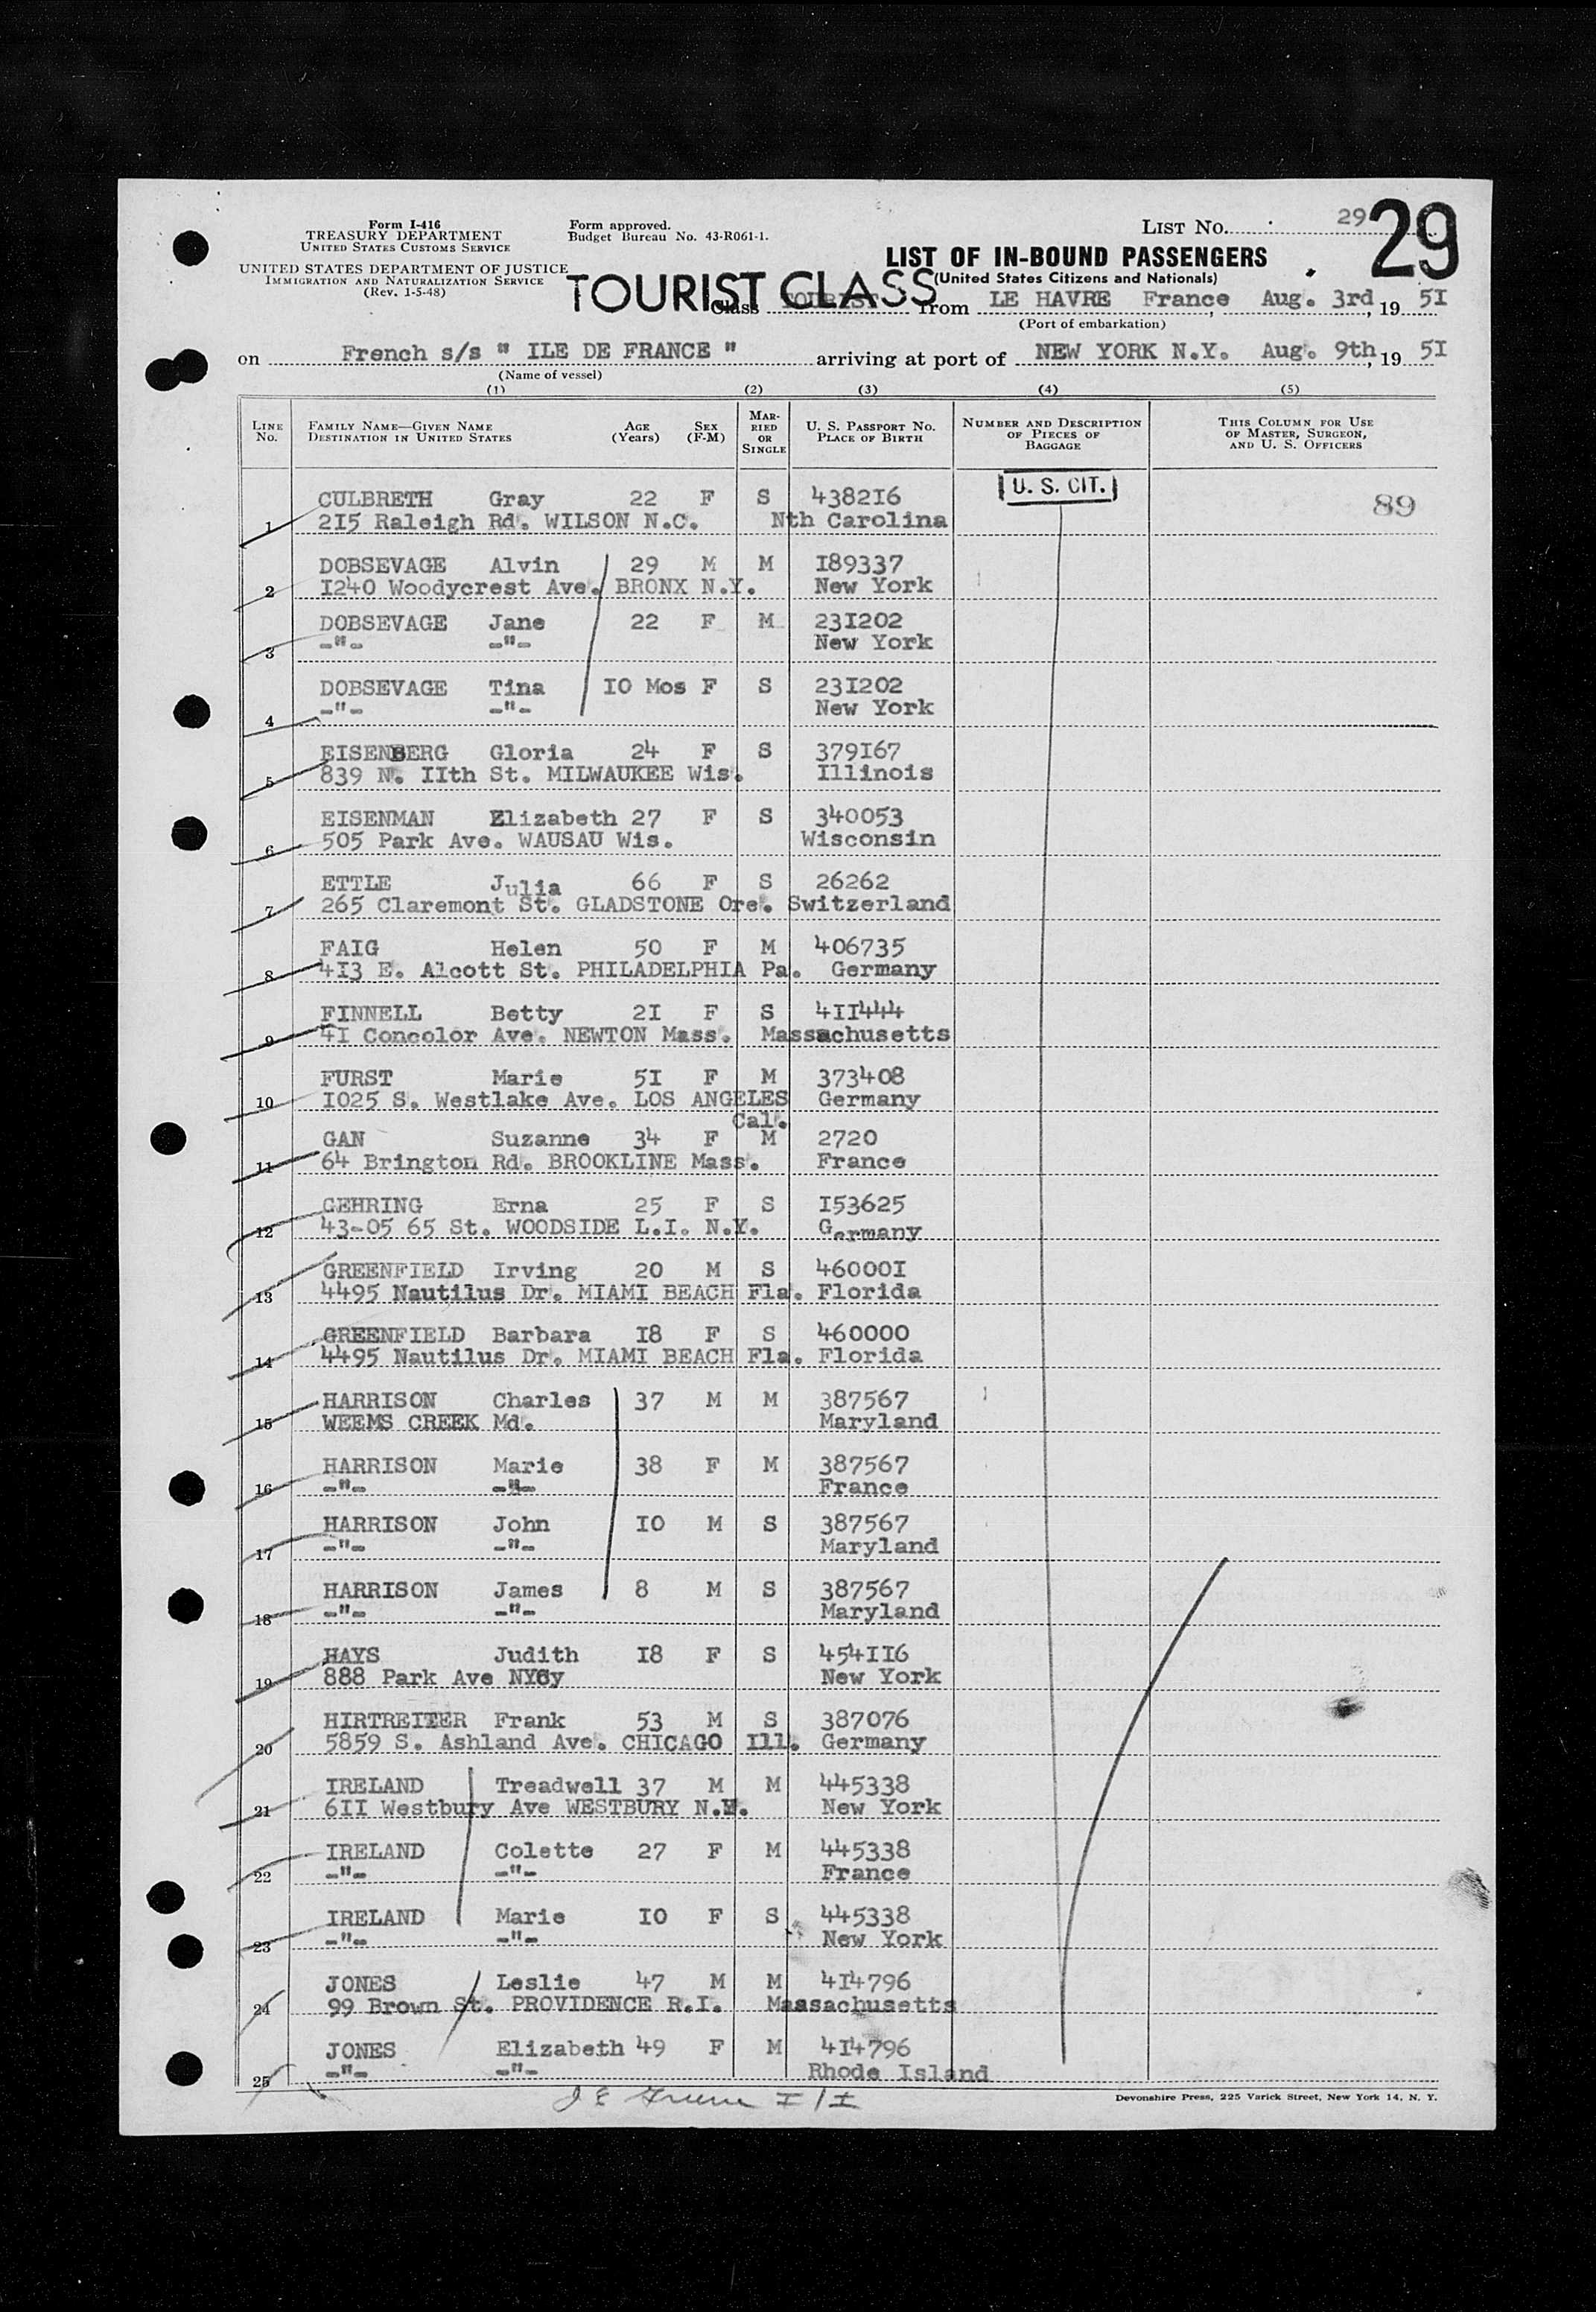 Form I-416
TREASURY DEPARTMENT
UNITED STATES CUSTOMS SERVICE
UNITED STATES DEPARTMENT OF JUSTICE
IMMIGRATION AND NATURALIZATION SERVICE
(Rev. 1-5-48)
Form approved.
Budget Bureau No. 43-R061-1.
LIST NO. 29
29
LIST OF IN-BOUND PASSENGERS
(United States Citizens and Nationals)
TOURIST CLASS
Class TOURIST from LE HAVRE France, Aug. 3rd, 19 5I
(Port of embarkation)
on French s/s " ILE DE FRANCE " arriving at port of NEW YORK N.Y. Aug. 9th, 19 5I
(Name of vessel)
(1) (2) (3) (4) (5)
LINE No. FAMILY NAME—GIVEN NAME DESTINATION IN UNITED STATES AGE (Years) SEX (F-M) MARRIED OR SINGLE U. S. PASSPORT NO. PLACE OF BIRTH NUMBER AND DESCRIPTION OF PIECES OF BAGGAGE THIS COLUMN FOR USE OF MASTER, SURGEON, AND U. S. OFFICERS
U. S. CIT.
89
CULBRETH Gray 22 F S 4382I6
1 2I5 Raleigh Rd. WILSON N.C. Nth Carolina
DOBSEVAGE Alvin 29 M M I89337
2 I240 Woodycrest Ave. BRONX N.Y. New York
DOBSEVAGE Jane 22 F M 23I202
3 -"- -"- New York
DOBSEVAGE Tina IO Mos F S 23I202
4 -"- -"- New York
EISENBERG Gloria 24 F S 379I67
5 839 N. IIth St. MILWAUKEE Wis. Illinois
EISENMAN Elizabeth 27 F S 340053
6 505 Park Ave. WAUSAU Wis. Wisconsin
ETTLE Julia 66 F S 26262
7 265 Claremont St. GLADSTONE Ore. Switzerland
FAIG Helen 50 F M 406735
8 4I3 E. Alcott St. PHILADELPHIA Pa. Germany
FINNELL Betty 2I F S 4II444
9 4I Concolor Ave. NEWTON Mass. Massachusetts
FURST Marie 5I F M 373408
10 I025 S. Westlake Ave. LOS ANGELES Germany
Cal.
GAN Suzanne 34 F M 2720
11 64 Brington Rd. BROOKLINE Mass. France
GEHRING Erna 25 F S I53625
12 43-05 65 St. WOODSIDE L.I. N.Y. Germany
GREENFIELD Irving 20 M S 46000I
13 4495 Nautilus Dr. MIAMI BEACH Fla. Florida
GREENFIELD Barbara I8 F S 460000
14 4495 Nautilus Dr. MIAMI BEACH Fla. Florida
HARRISON Charles 37 M M 387567
15 WEEMS CREEK Md. Maryland
HARRISON Marie 38 F M 387567
16 -"- -"- France
HARRISON John IO M S 387567
17 -"- -"- Maryland
HARRISON James 8 M S 387567
18 -"- -"- Maryland
HAYS Judith I8 F S 454II6
19 888 Park Ave NYCy New York
HIRTREITER Frank 53 M S 387076
20 5859 S. Ashland Ave. CHICAGO Ill. Germany
IRELAND Treadwell 37 M M 445338
21 6II Westbury Ave WESTBURY N.Y. New York
IRELAND Colette 27 F M 445338
22 -"- -"- France
IRELAND Marie IO F S 445338
23 -"- -"- New York
JONES Leslie 47 M M 4I4796
24 99 Brown St. PROVIDENCE R.I. Massachusetts
JONES Elizabeth 49 F M 4I4796
25 -"- -"- Rhode Island
I/I
Devonshire Press, 225 Varick Street, New York 14, N. Y.